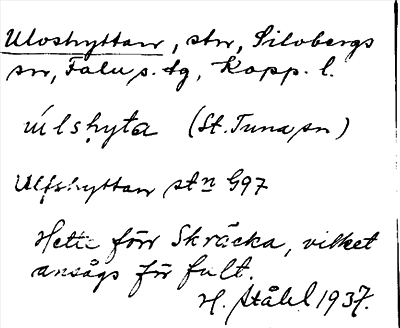 Uloshyttan, stn, Silvbergs
sn, Falu s. tg, Kopp. l.
úlshyta (St. Tuna sn)
Ulfshyttan stn G97
Hette förr Skräcka, vilket
ansågs för fult.
H. Ståhl 1937.